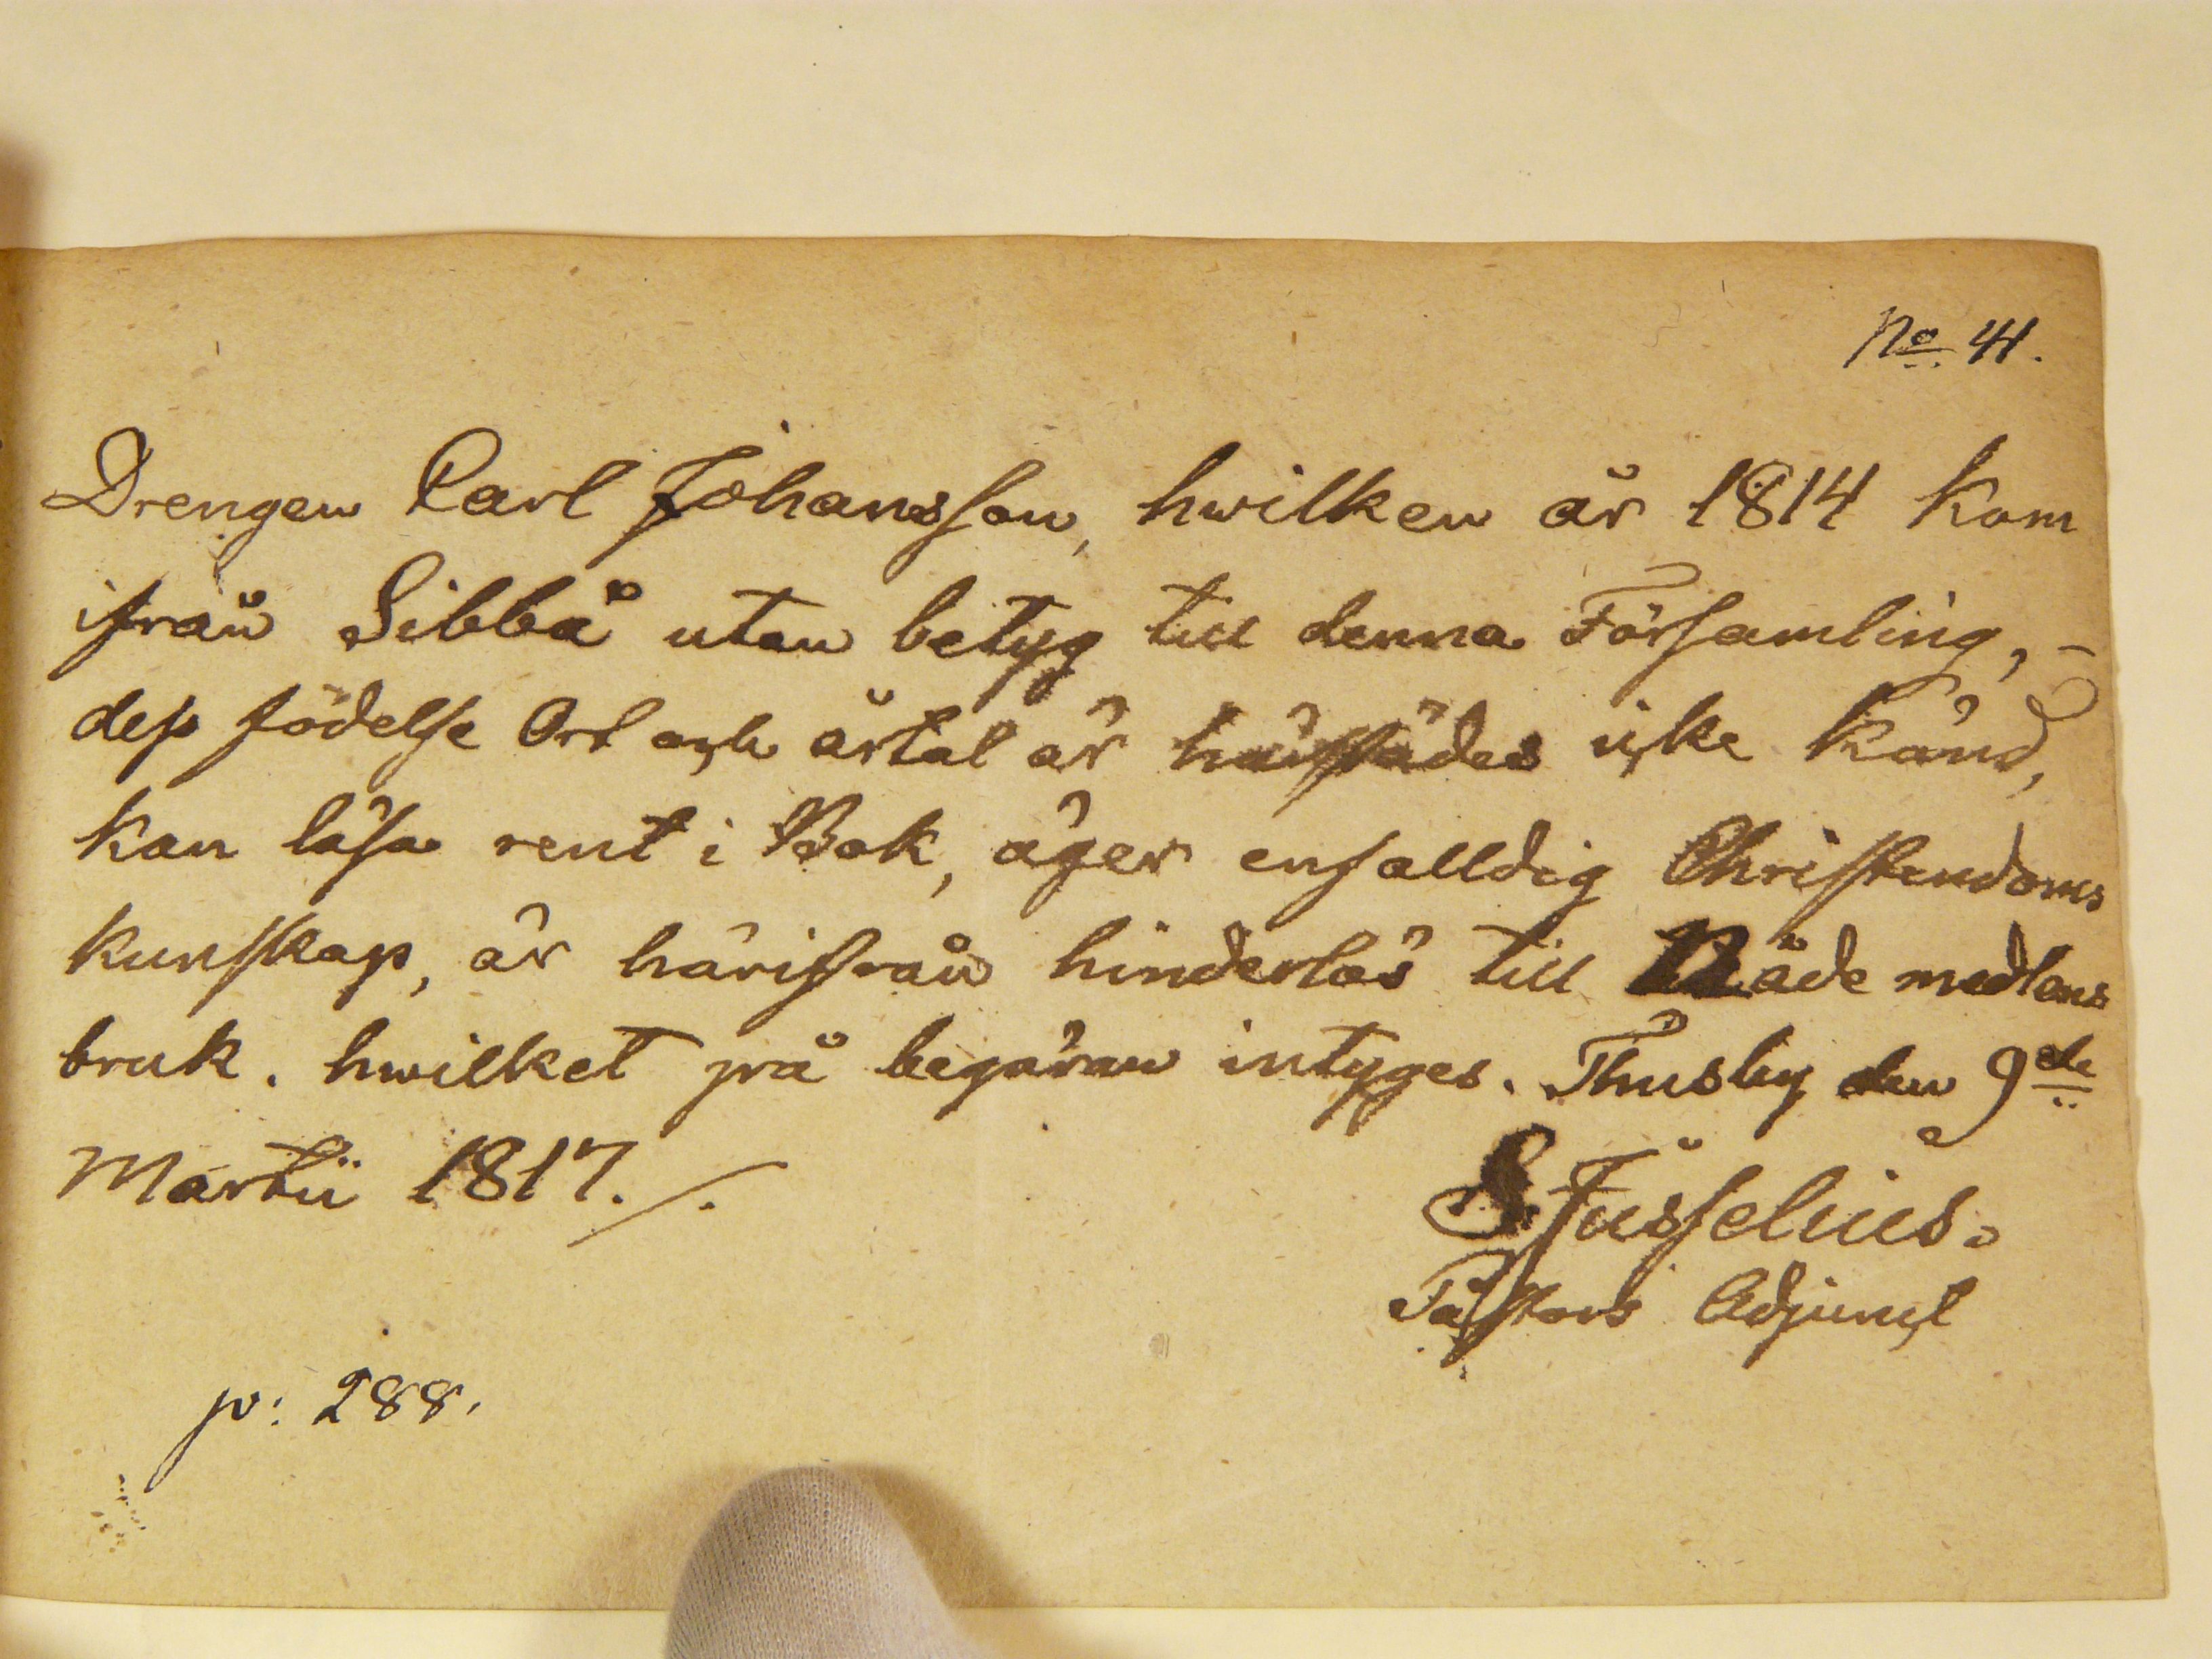 No 41.
Drengen Carl Johansson, hwilken år 1814 kom
ifrån Sibbå utan betyg till denna Församling, -
dess födelse Ort och årtal är härstädes icke känd,
kan läsa rent i Bok, äger enfalldig Christendoms
kunskap, är härifrån hinderlös till Nåde medlens
bruk. hwilket på begäran intyges. Thusby den 9de
Martii 1817./.
S Fusselius.
Pastors Adjunct
p: 288.